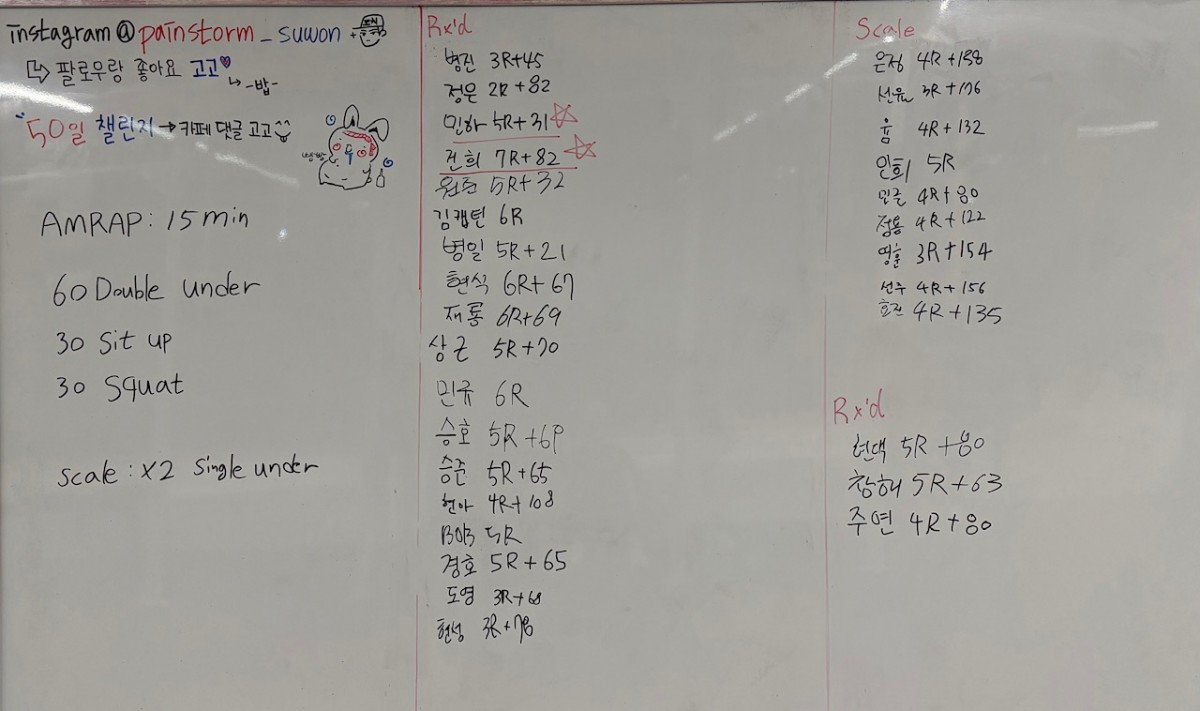 instagram@painstorm_suwon
팔로우랑 좋아요 고고
-밥-
50일 챌린지→카페 댓글 고고
AMRAP: 15min
60 Double under
30 Sit up
30 Squat
scale: x2 Single under
Rx'd
병진 3R+45
정은 2R+82
민하 5R+31
건희 7R+82
원준 5R+32
김캡틴 6R
병일 5R+21
현식 6R+67
재룡 6R+69
상근 5R+70
민규 6R
승호 5R+69
승준 5R+65
현아 4R+108
BOB 5R
경호 5R+65
도영 3R+
현성 3R+78
Scale
은정 4R+188
선유 3R+176
윤 4R+132
인희 5R
4R+80
정용 4R+122
영훈 3R+154
선우 4R+156
호진 4R+135
Rx'd
현택 5R+80
창해 5R+63
주연 4R+80